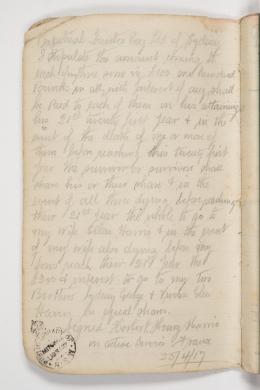 Perpetual Trustee Coy Ltd of Sydney
I stipulate the amount owing to
each of my three sons viz £100 one hundred
pounds in all, with interest if any shall
be paid to each of them on his attaining
his 21st twenty first year & in the
event of the death of one or more of
them before reaching their twenty first
year the survivor or survivors shall
share his or their share & in the
event of all three dying before reaching
their 21st year the whole to go to
my wife Ellen Harris & in the event
of my wife also dying before my
sons reach their 21st year the
£300 & interest to go to my two
Brothers Sydney & Lee
Harris in equal share.
Signed Hubert Henry Harris
on active service France
25/4/17